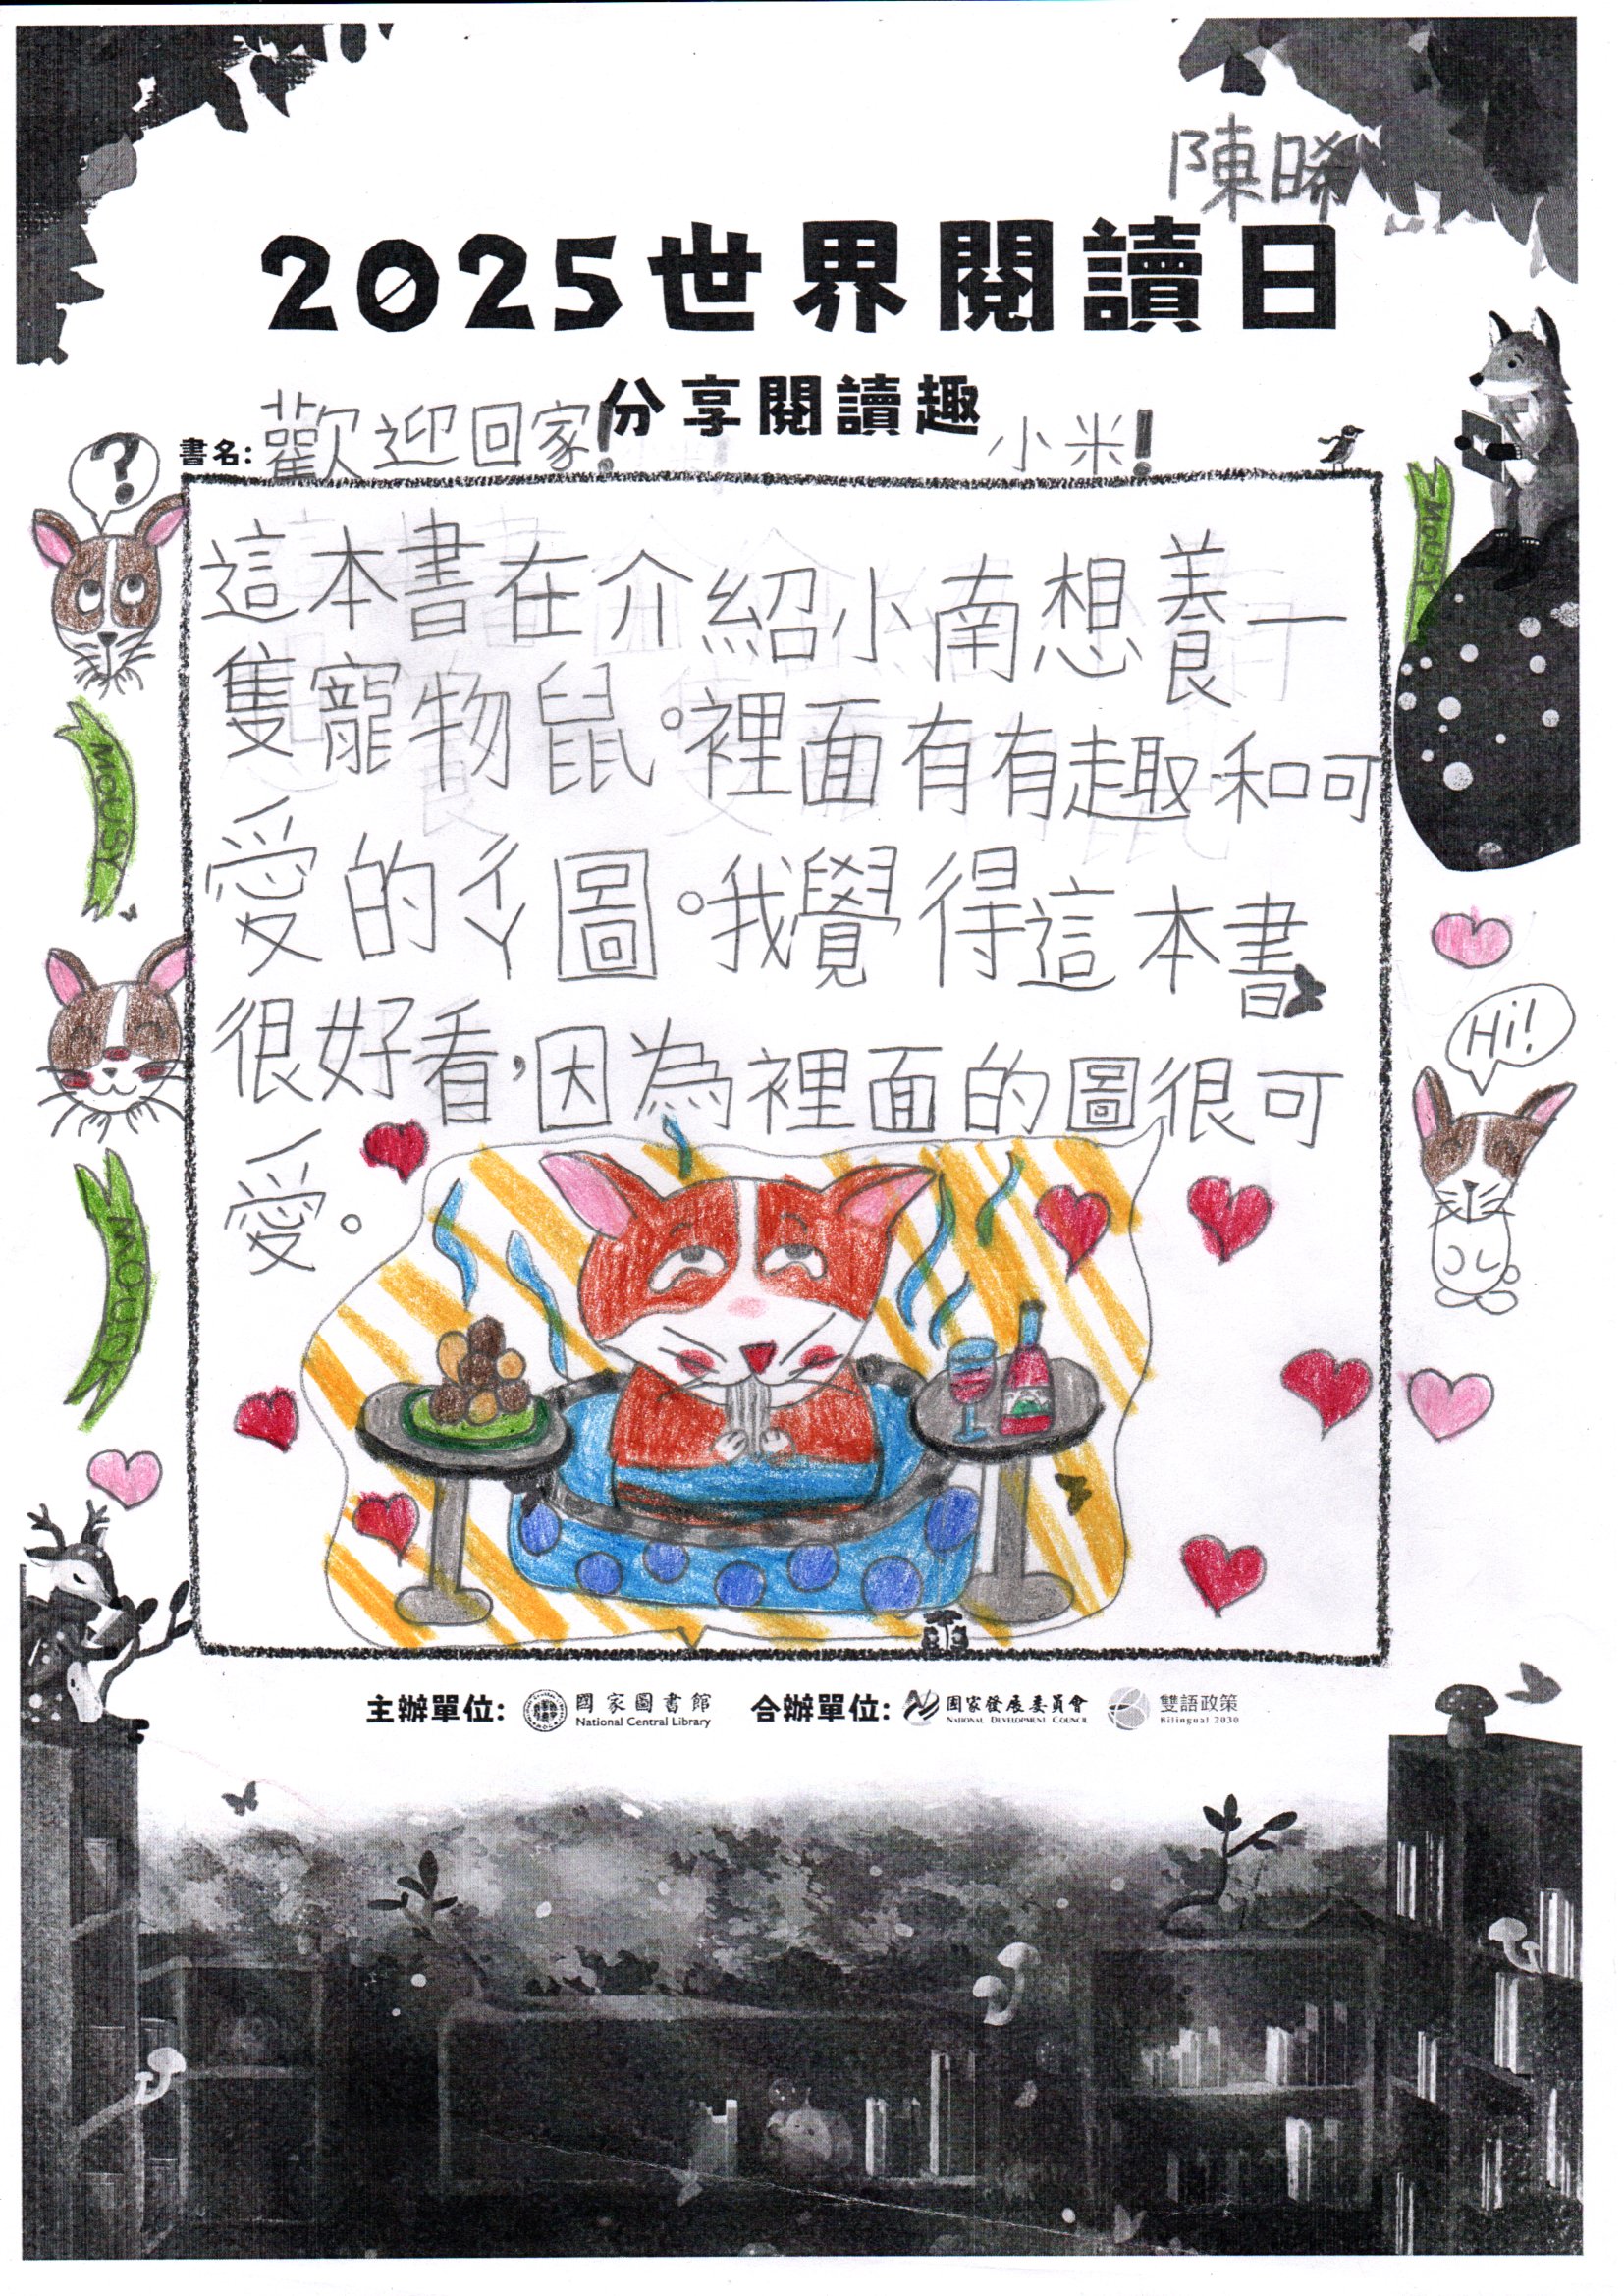 陳晞
2025世界閱讀日
分享閱讀趣
書名:歡迎回家! 小米!
?
這本書在介紹小南想養一
隻寵物鼠。裡面有有趣和可
愛的ㄔㄚ圖。我覺得這本書
很好看,因為裡面的圖很可
愛。
MOUSY
MOUSY
MOUCK
Hi!
主辦單位: 國家圖書館 National Central Library 合辦單位: 國家發展委員會 NATIONAL DEVELOPMENT COUNCIL 雙語政策 Bilingual 2030